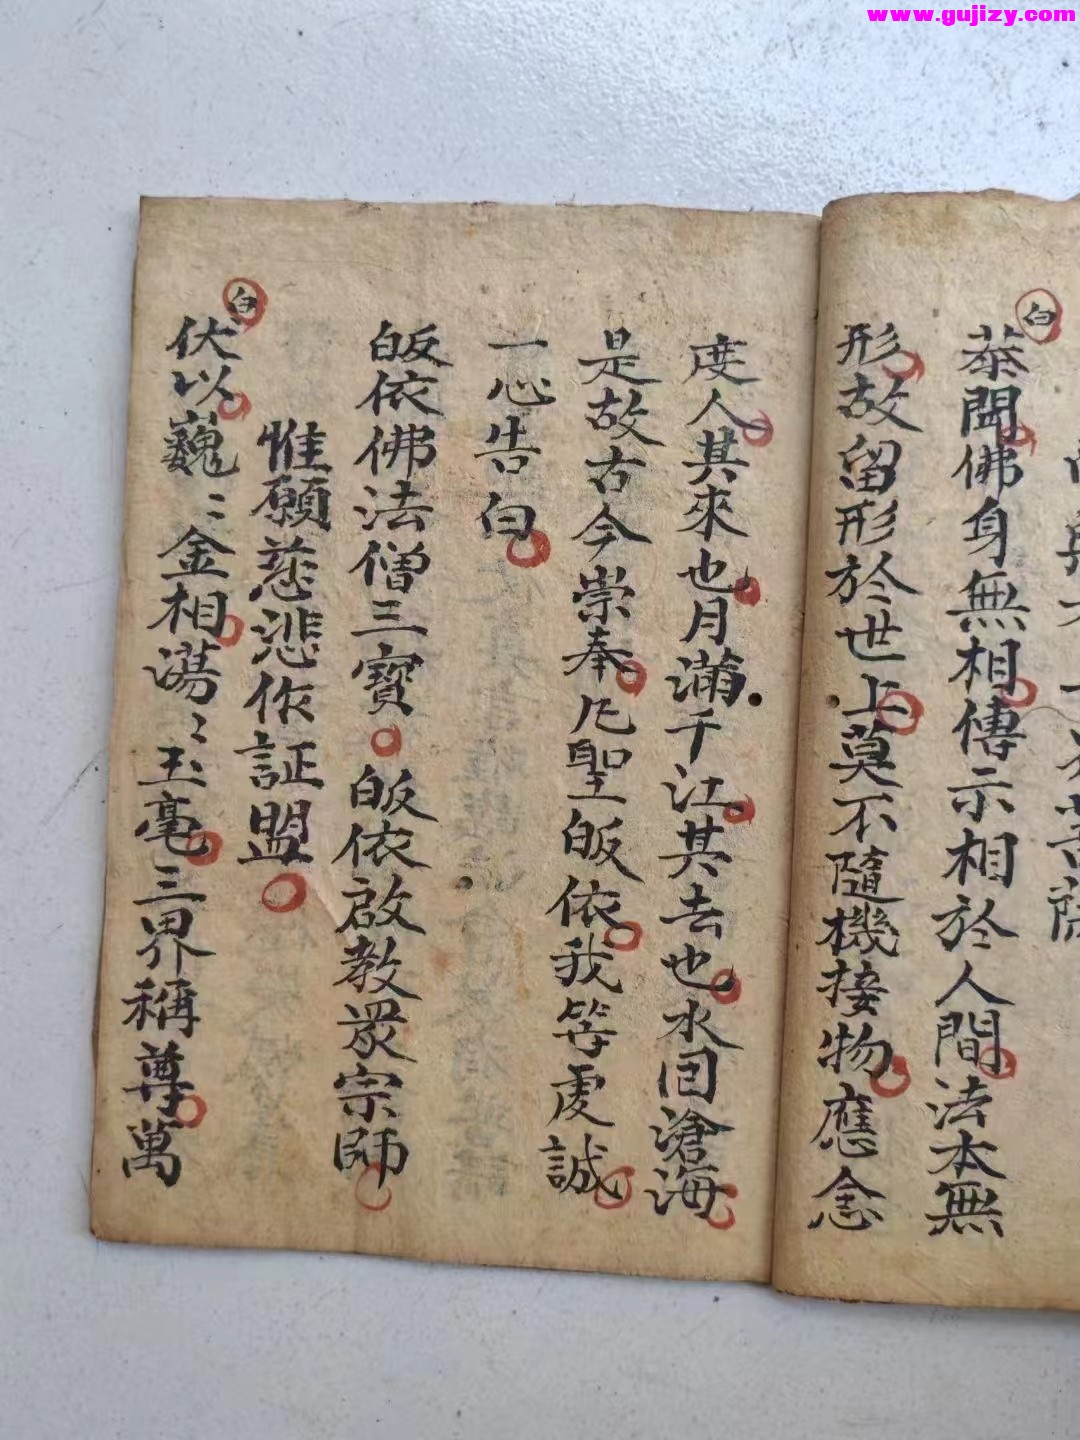 www.gujizy.com
白
恭聞佛身無相傳示相於人間法本無
形故留形於世上莫不隨機接物應念
度人其來也月滿千江其去也水回滄海
是故古今崇奉凡聖皈依我等虔誠
一心告白
皈依佛法僧三寶皈依啟教眾宗師
惟願慈悲作証盟
白
伏以巍〻金相蕩〻玉毫三界稱尊萬